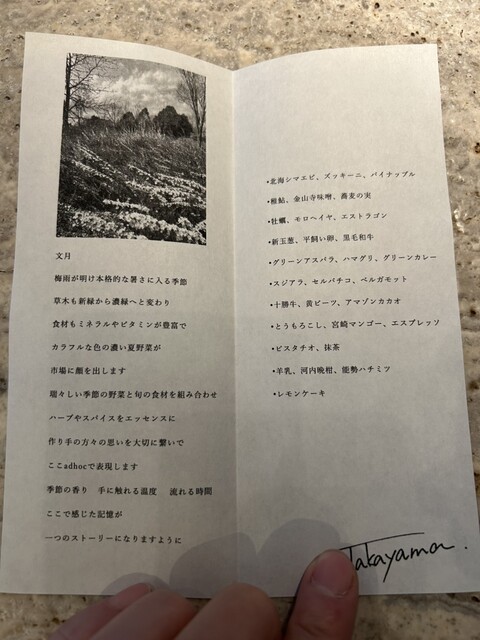 文月
梅雨が明け本格的な暑さに入る季節
草木も新緑から濃緑へと変わり
食材もミネラルやビタミンが豊富で
カラフルな色の濃い夏野菜が
市場に顔を出します
瑞々しい季節の野菜と旬の食材を組み合わせ
ハーブやスパイスをエッセンスに
作り手の方々の思いを大切に繋いで
ここadhocで表現します
季節の香り 手に触れる温度 流れる時間
ここで感じた記憶が
一つのストーリーになりますように
•北海シマエビ、ズッキーニ、パイナップル
•稚鮎、金山寺味噌、蕎麦の実
•牡蠣、モロヘイヤ、エストラゴン
•新玉葱、平飼い卵、黒毛和牛
•グリーンアスパラ、ハマグリ、グリーンカレー
•スジアラ、セルバチコ、ベルガモット
•十勝牛、黄ビーツ、アマゾンカカオ
•とうもろこし、宮崎マンゴー、エスプレッソ
•ピスタチオ、抹茶
•羊乳、河内晩柑、能勢ハチミツ
•レモンケーキ
Takayama.